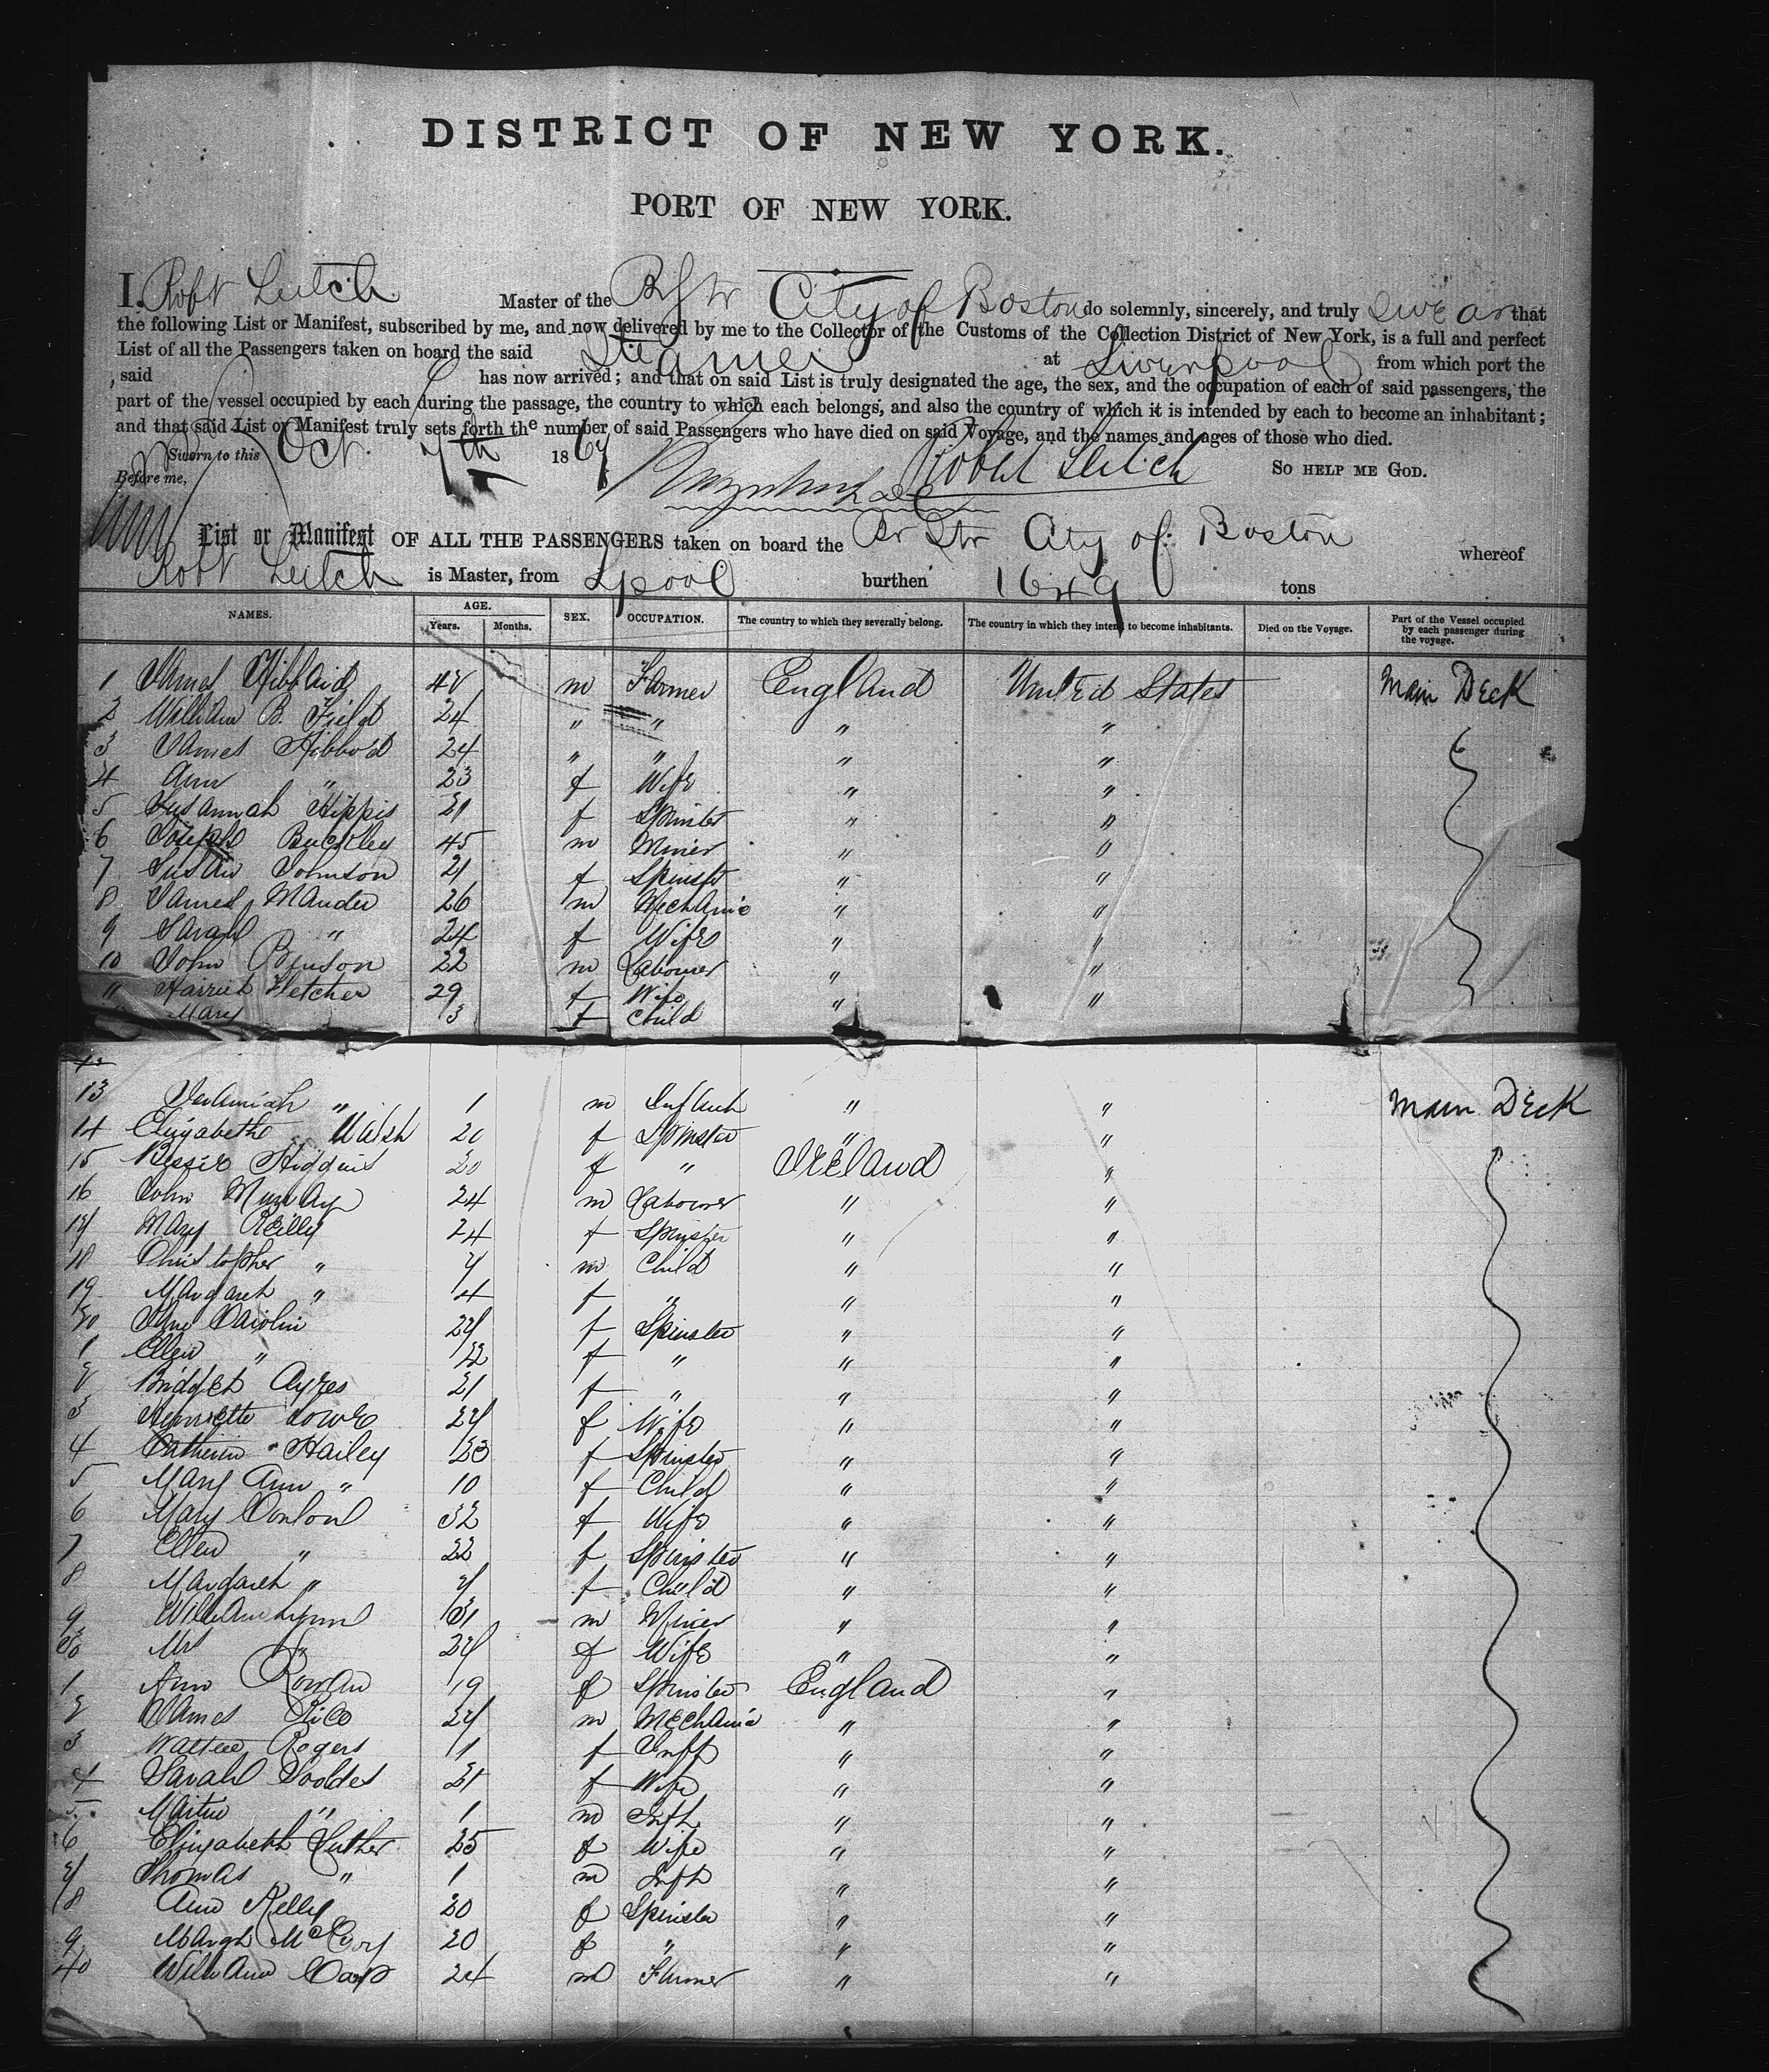 DISTRICT OF NEW YORK.
PORT OF NEW YORK.
I, Robt Leitch Master of the Br Str City of Boston do solemnly, sincerely, and truly swear that
the following List or Manifest, subscribed by me, and now delivered by me to the Collector of the Customs of the Collection District of New York, is a full and perfect
List of all the Passengers taken on board the said Steamer at Liverpool from which port the
said has now arrived; and that on said List is truly designated the age, the sex, and the occupation of each of said passengers, the
part of the vessel occupied by each during the passage, the country to which each belongs, and also the country of which it is intended by each to become an inhabitant;
and that said List or Manifest truly sets forth the number of said Passengers who have died on said Voyage, and the names and ages of those who died.
Sworn to this Oct. 7th 1867 Robert Leitch SO HELP ME GOD.
Before me,
List or Manifest OF ALL THE PASSENGERS taken on board the Br Str City of Boston whereof
Robt Leitch is Master, from Lpool burthen 1649 tons
NAMES. AGE. Years. Months. SEX. OCCUPATION. The country to which they severally belong. The country in which they intend to become inhabitants. Died on the Voyage. Part of the Vessel occupied by each passenger during the voyage.
1 James Hibbard m Farmer England United States Main Deck
2 William B. 24 " " " "
3 James Hibbold 24 " " " "
4 Ann " 23 f Wife " "
5 Susannah Hippis 21 f Spinster " "
6 Joseph Buckley 45 m Miner " "
7 Susan Johnson 21 f Spinster " "
8 James Mander 26 m Mechanic " "
9 Sarah " 24 f Wife " "
10 John Benson 22 m Labourer " "
" Harriet Fletcher 29 f Wife " "
Mary 3 f Child
13 Jeramiah " 1 m Infant " " Main Deck
14 Elizabeth Walsh 20 f Spinster " "
15 Bessie Higgins 20 f " Ireland "
16 John Murray 24 m Labourer " "
17 Mary Reilly 24 f Spinster " "
18 Christopher " 7 m Child " "
19 Margaret " 4 f " " "
20 Jane Carolin 27 f Spinster " "
1 Ellen " 22 f " " "
2 Bridget Ayres 21 f " " "
3 Henrietta Lowe 27 f Wife " "
4 Catherine Hailey 23 f Spinster " "
5 Mary Ann " 10 f Child " "
6 Mary Conlon 32 f Wife " "
7 Ellen " 22 f Spinster " "
8 Margaret " 7 f Child " "
9 William Lynn 31 m Miner " "
30 Mrs " 27 f Wife " "
1 Ann Rowan 19 f Spinster England "
2 James Rice 27 m Mechanic " "
3 Walter Rogers 11 f Inft " "
4 Sarah 21 f Wife " "
5 Martin " 1 m Inft " "
6 Elizabeth Luther 25 f Wife " "
7 Thomas " 1 m Inft " "
8 Ann Kelly 20 f Spinster " "
9 Margt 20 f " " "
40 William Carr 24 m Farmer " "